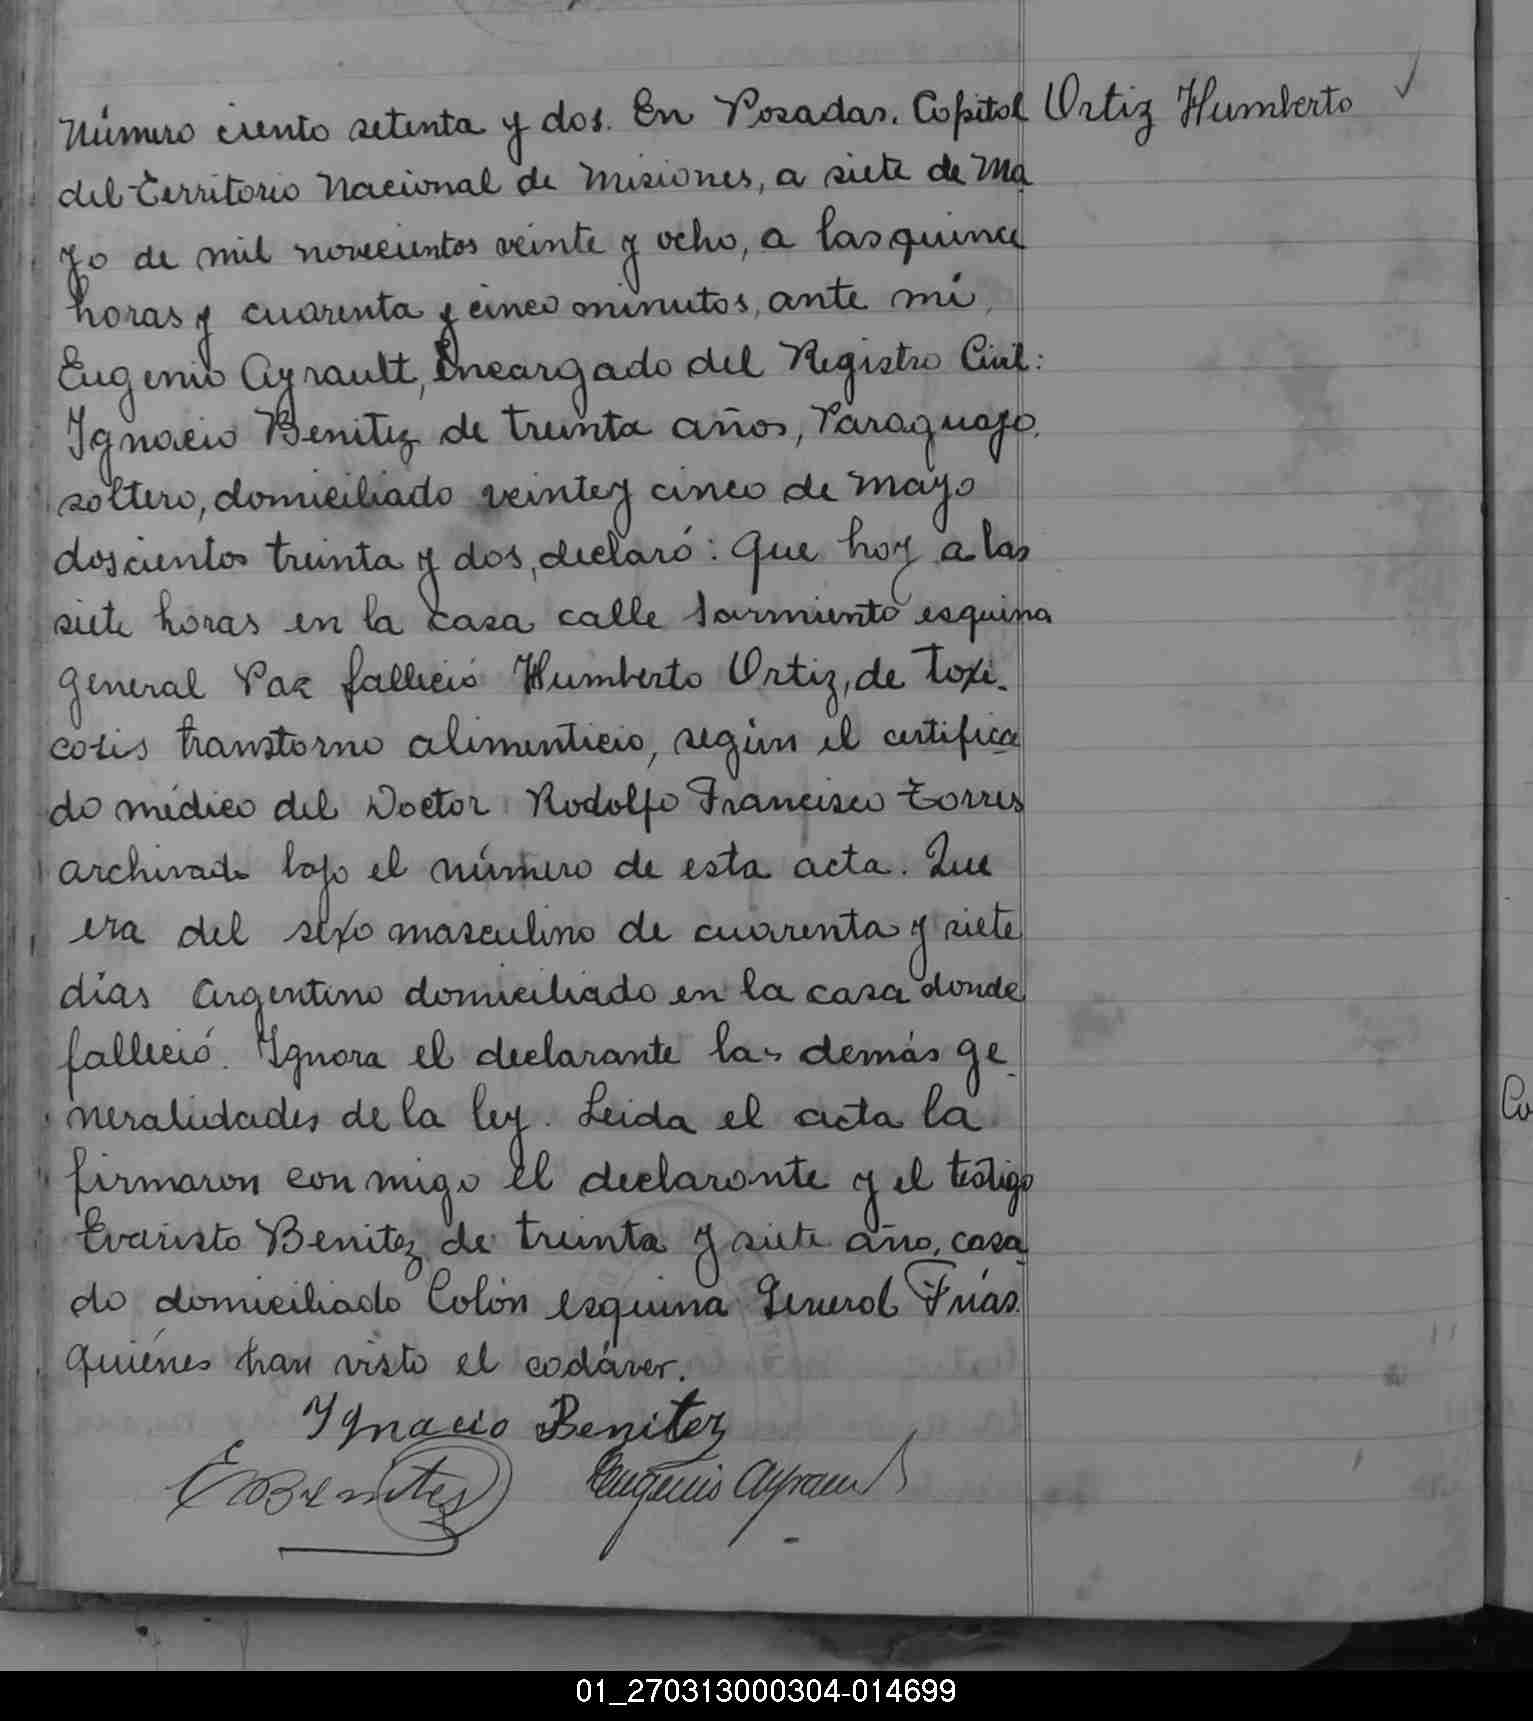 Número ciento setenta y dos. En Posadas, Capital
Ortiz Humberto
del Territorio Nacional de Misiones, a siete de Ma
yo de mil novecientos veinte y ocho, a las quince
horas y cuarenta y cinco minutos, ante mi,
Eugenio Ayrault, Encargado del Registro Civil:
Ignacio Benitez de treinta años, Paraguayo,
soltero, domiciliado veinte y cinco de Mayo
doscientos treinta y dos, declaró: Que hoy a las
siete horas en la casa calle Sarmiento esquina
General Paz falleció Humberto Ortiz, de toxi-
cosis transtorno alimenticio, según el certifica
do médico del Doctor Rodolfo Francisco Torres
archivado bajo el número de esta acta. Que
era del sexo masculino de cuarenta y siete
días Argentino domiciliado en la casa donde
falleció. Ignora el declarante las demás ge-
neralidades de la ley. Leida el acta la
firmaron conmigo el declarante y el testigo
Evaristo Benitez de treinta y siete año, casa-
do domiciliado Colón esquina General Frías.
Quiénes han visto el cadáver.
Ignacio Benitez
E Benites
Eugenio Ayrault
Co
01_270313000304-014699